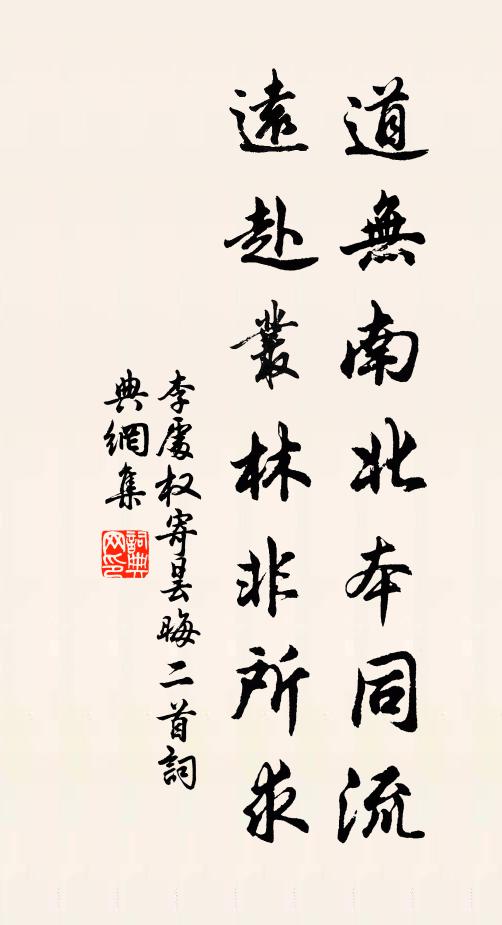 道無南北本同流
遠赴叢林非所求
李處权寄曇晦二首詞
典網集
詞典
网印